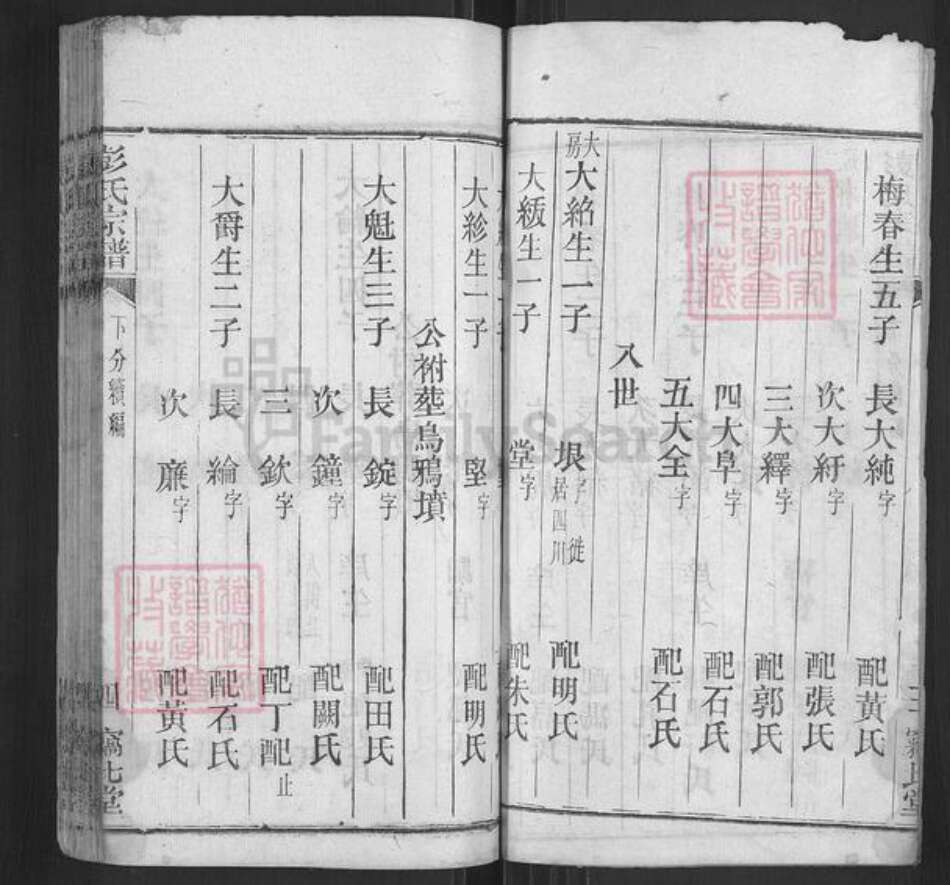 梅春生五子 長大純字 配黃氏
次大紆字 配張氏
三大繹字 配郭氏
四大皐字 配石氏
五大全字 配石氏
八世
大房 大絡生一子 垠字 徙居四川 配明氏
大緩生一子 堂字 配朱氏
大紾生一子 堅字 配明氏
公祔塟烏鴉墳
大魁生三子 長錠字 配田氏
次鐘字 配闕氏
三欽字 配丁配止
大爵生二子 長綸字 配石氏
次廉字 配黃氏
彭氏宗譜 下分續編 四
FamilySearch